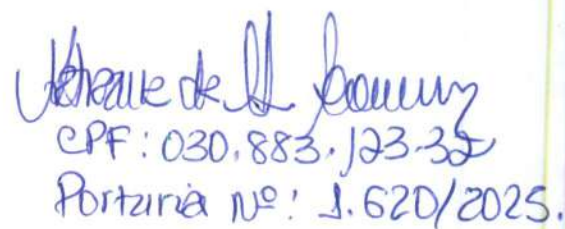 de
CPF: 030.883.123-32
Portaria Nº: 1.620/2025.